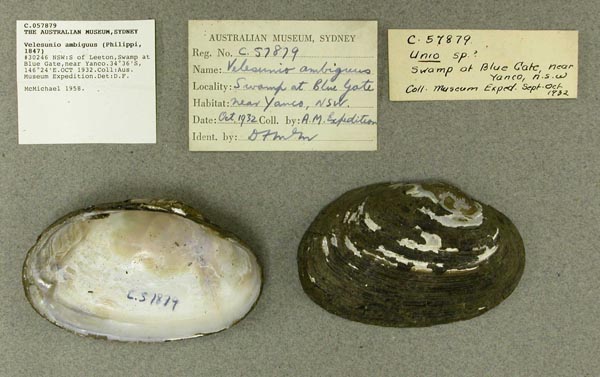 C.057879
THE AUSTRALIAN MUSEUM,SYDNEY
Velesunio ambiguus (Philippi,
1847)
#30246 NSW:S of Leeton,Swamp at
Blue Gate,near Yanco.34°36'S,
146°24'E.OCT 1932.Coll:Aus.
Museum Expedition.Det:D.F.
McMichael 1958.
AUSTRALIAN MUSEUM, SYDNEY
Reg. No. C.57879
Name: Velesunio ambiguus
Locality: Swamp at Blue Gate
Habitat: near Yanco, NSW.
Date: Oct, 1932 Coll. by: A.M. Expedition
Ident. by:
C. 57879.
Unio sp.
Swamp at Blue Gate, near
Yanco, N.S.W
Coll. Museum Exped. Sept-Oct.
1932
C.57879